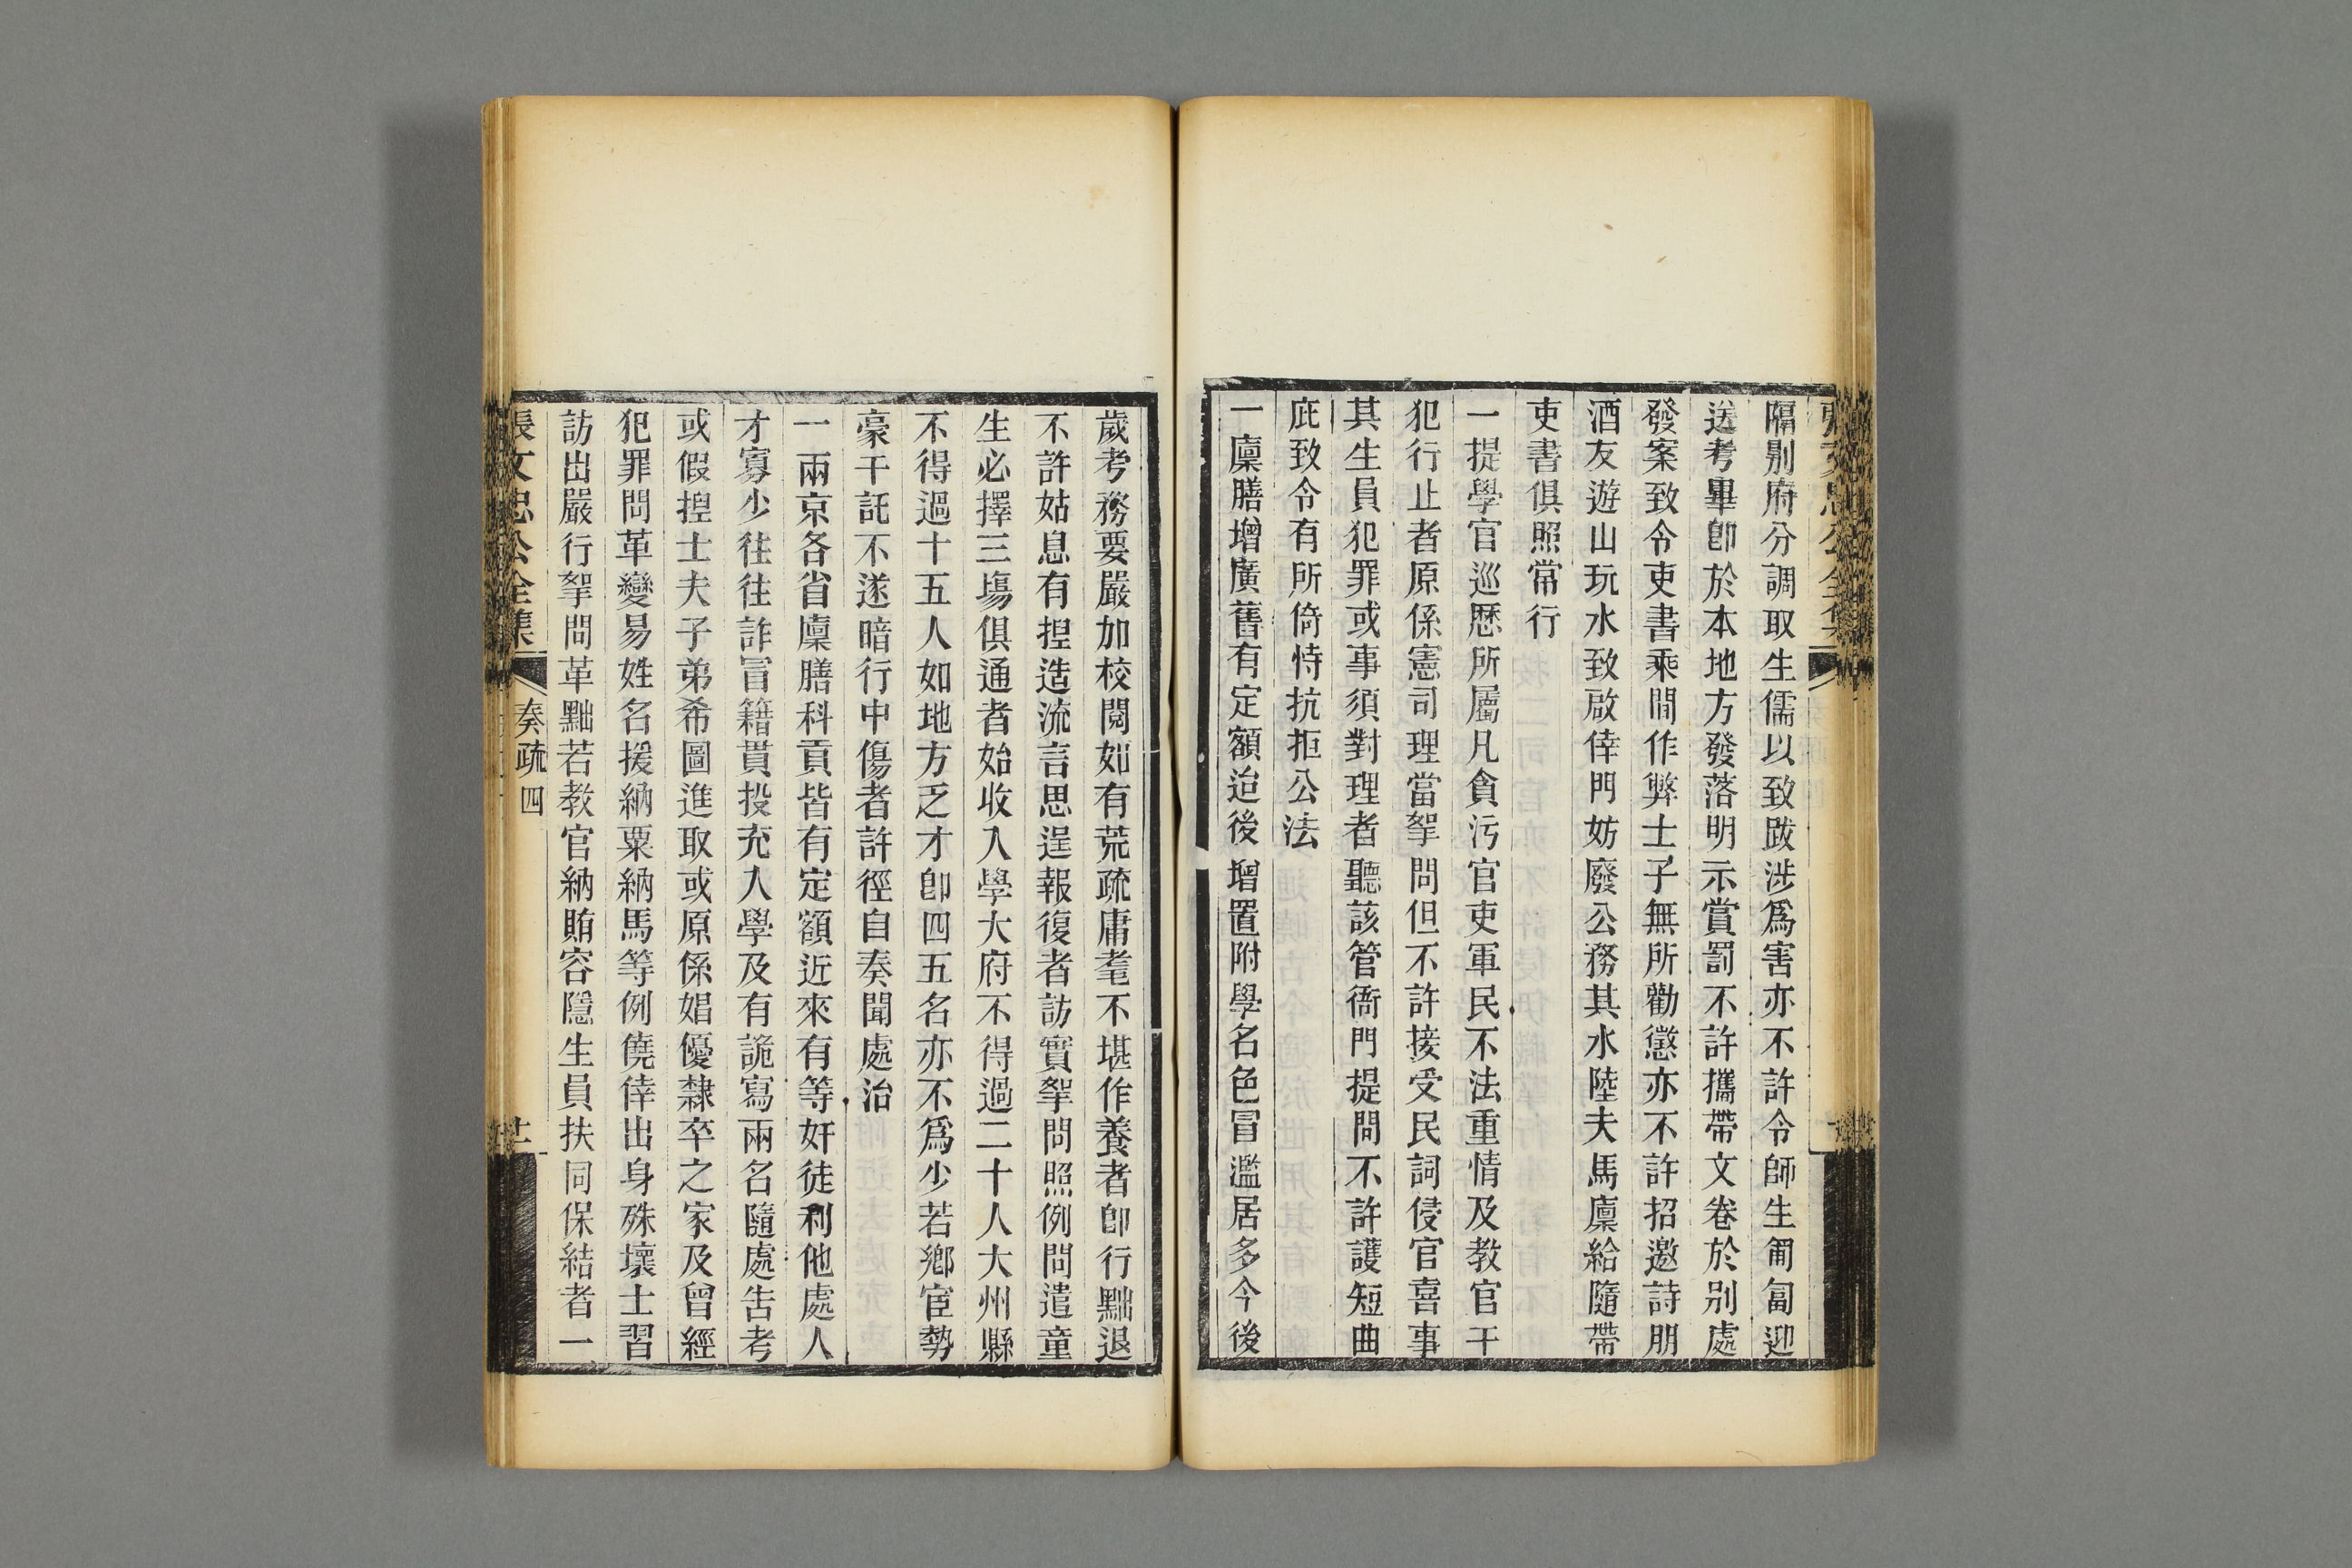 隔別府分調取生儒以致跋涉爲害亦不許令師生匍匐迎
送考畢卽於本地方發落明示賞罰不許攜帶文卷於別處
發案致令吏書乘間作弊士子無所勸懲亦不許招邀詩朋
酒友遊山玩水致啟倖門妨廢公務其水陸夫馬廩給隨帶
吏書俱照常行
一提學官巡歷所屬凡貪污官吏軍民不法重情及教官干
犯行止者原係憲司理當拏問但不許接受民詞侵官喜事
其生員犯罪或事須對理者聽該管衙門提問不許護短曲
庇致令有所倚恃抗拒公法
一廩膳增廣舊有定額迨後增置附學名色冒濫居多今後
歲考務要嚴加校閱如有荒疏庸耄不堪作養者卽行黜退
不許姑息有捏造流言思逞報復者訪實拏問照例問遣童
生必擇三場俱通者始收入學大府不得過二十人大州縣
不得過十五人如地方乏才卽四五名亦不爲少若鄉宦勢
豪干託不遂暗行中傷者許徑自奏聞處治
一兩京各省廩膳科貢皆有定額近來有等奸徒利他處人
才寡少往往詐冒籍貫投充入學及有詭寫兩名隨處告考
或假捏士夫子弟希圖進取或原係娼優隸卒之家及曾經
犯罪問革變易姓名援納粟納馬等例僥倖出身殊壞士習
訪出嚴行拏問革黜若教官納賄容隱生員扶同保結者一
張文忠公全集 奏疏四 十二